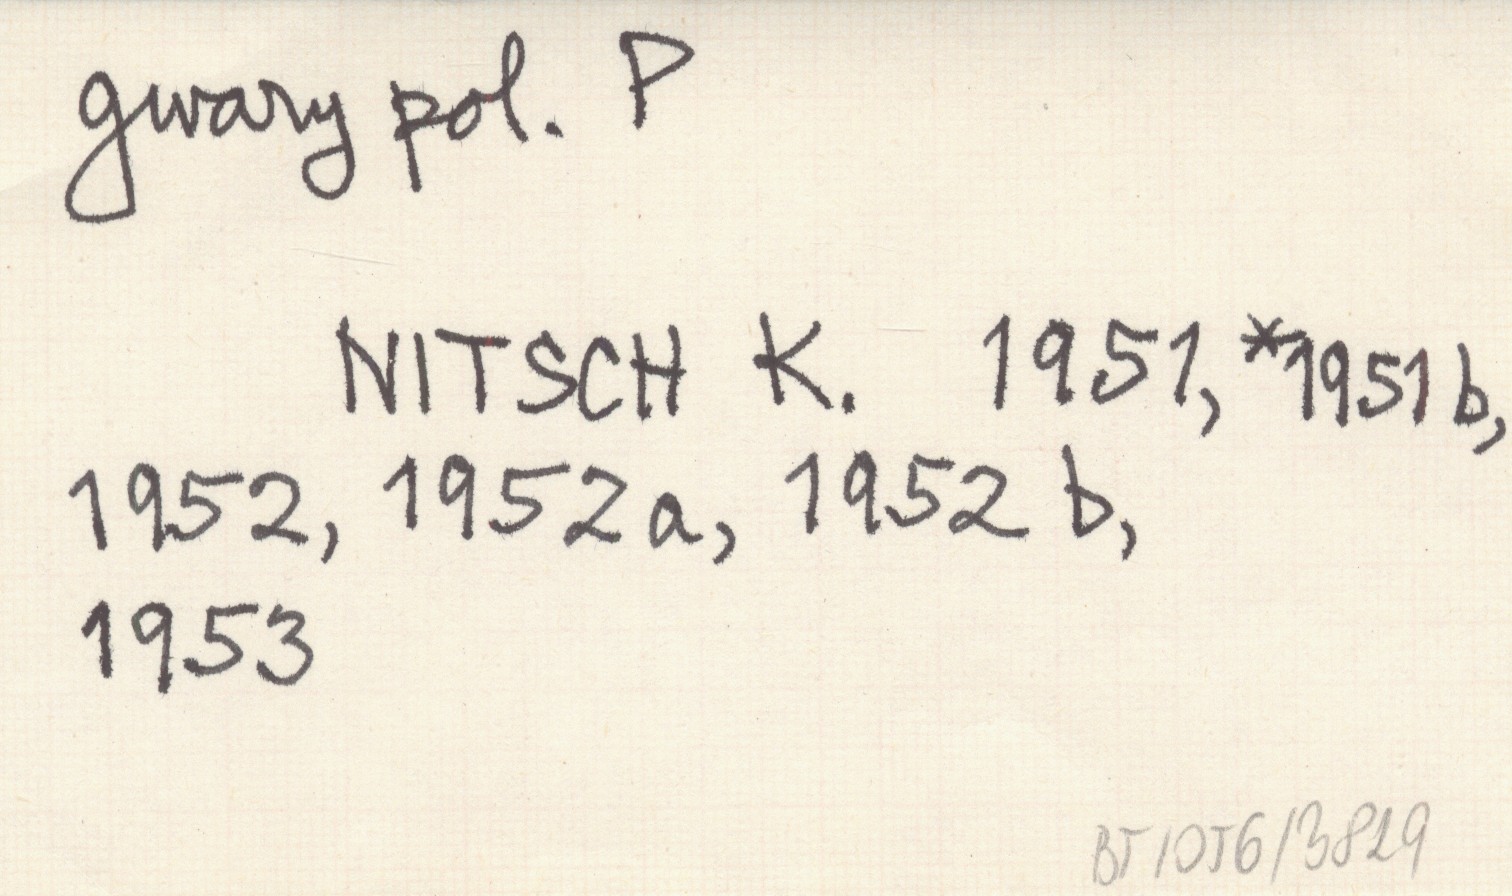 gwary pol. P
NITSCH K. 1951, *1951b,
1952, 1952a, 1952b,
1953
BT1056/3829